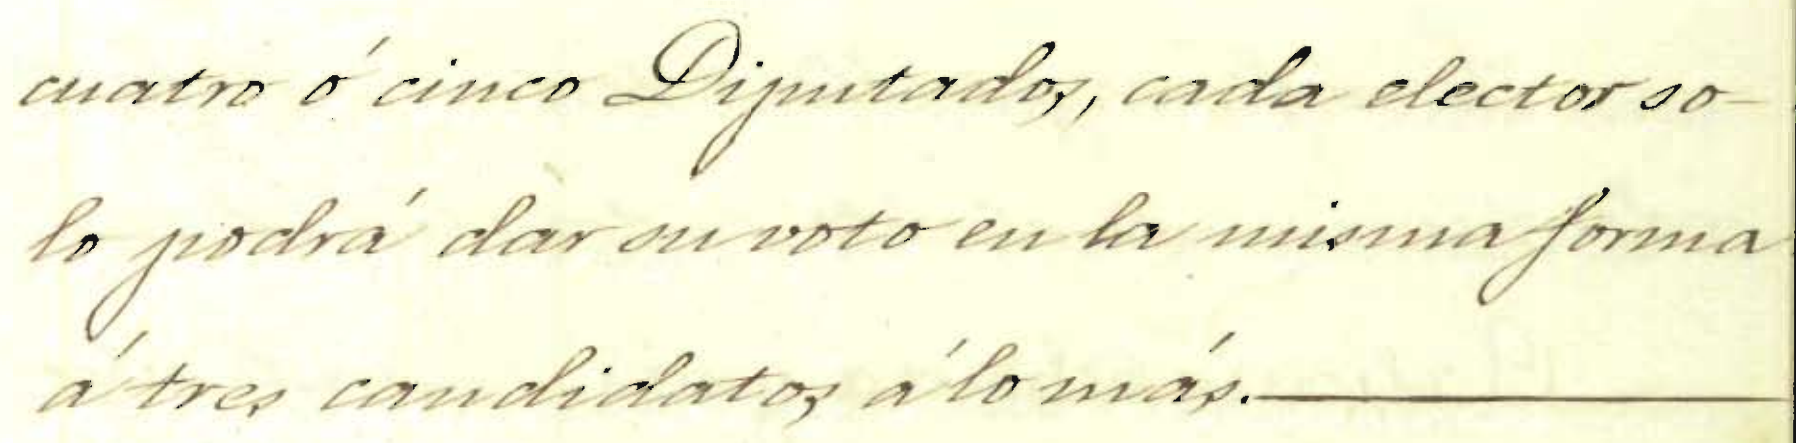 cuatro ó cinco Diputados, cada elector so-
lo podrá dar su voto en la misma forma
á tres candidatos á lo más.